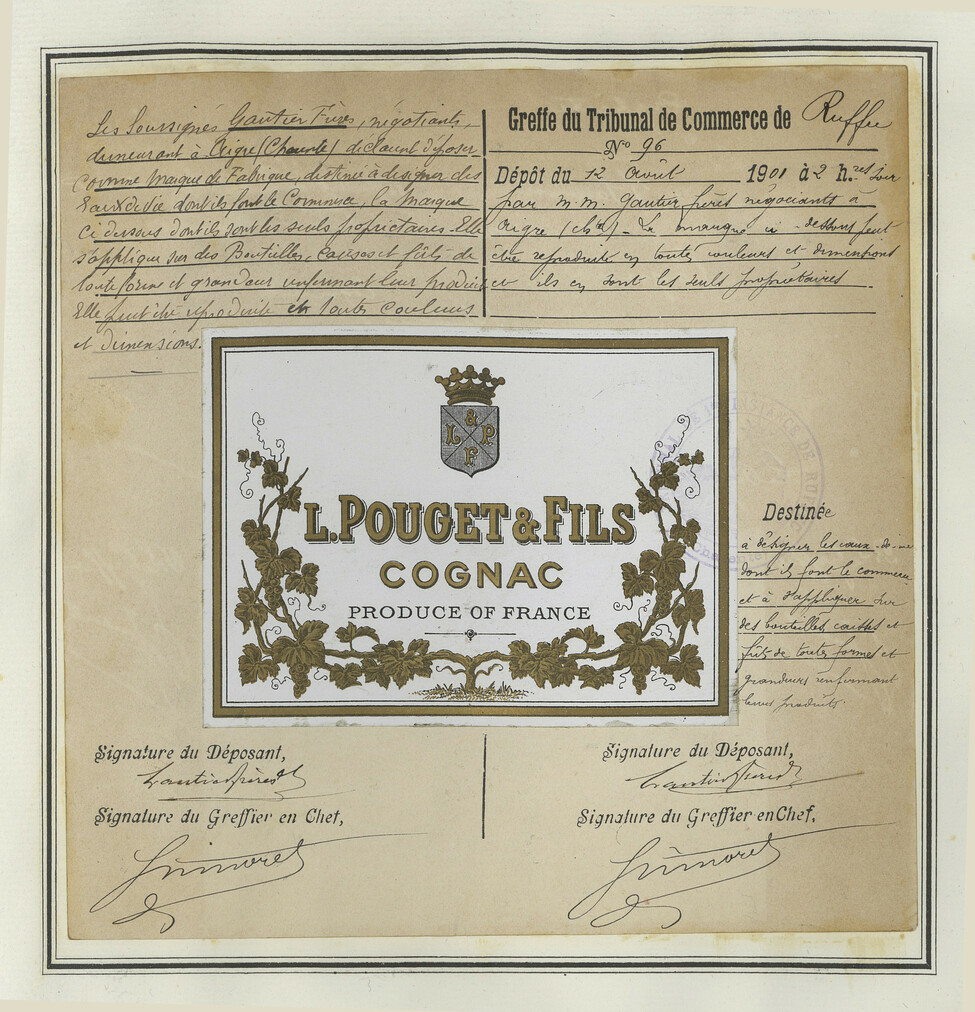 Les Soussignés Gautier Frères, négotiants,
demeurant à Aigre (Charente) déclarent déposer
comme Marque de Fabrique, destinée à designer des
Eaux de vie dont ils font le Commerce, la Marque
ci dessous dont ils sont les seuls propriétaires. Elle
s'applique sur des Bouteilles, caisses et fûts de
toute forme et grandeur renfermant leur produit
Elle peut être reproduite en toutes couleurs
et dimensions.
Greffe du Tribunal de Commerce de Ruffec
No 96
Dépôt du 12 Août 1901 à 2 h.res soir
par M.M. Gautier frères négociants à
Aigre (chte) - La marque ci-dessous peut
être reproduite en toutes couleurs et dimensions
et ils en sont les seuls propriétaires
L & P F
L. POUGET & FILS
COGNAC
PRODUCE OF FRANCE
INSTANCE DE RUF
Destinée
à désigner les eaux-de-vie
dont ils font le commerce
et à s'appliquer sur
des bouteilles, caisses et
fûts de toutes formes et
grandeurs renfermant
leurs produits.
Signature du Déposant,
Gautier frères
Signature du Greffier en Chef,
Signature du Déposant,
Gautier frères
Signature du Greffier en Chef,